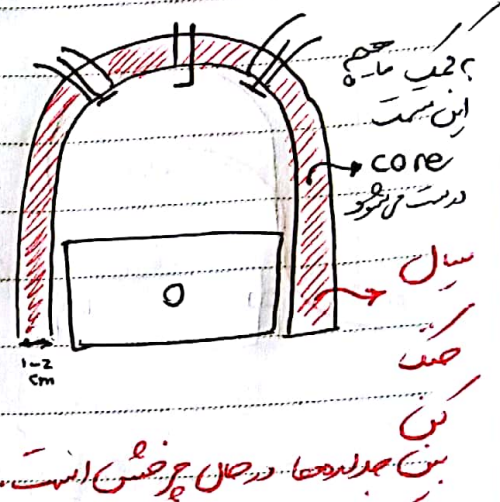 به کمک ماهیچه
این قسمت
core
درست می‌شود
سیال
خنک
کن
بین جداره‌ها در حال چرخش است.
۱-۲
cm